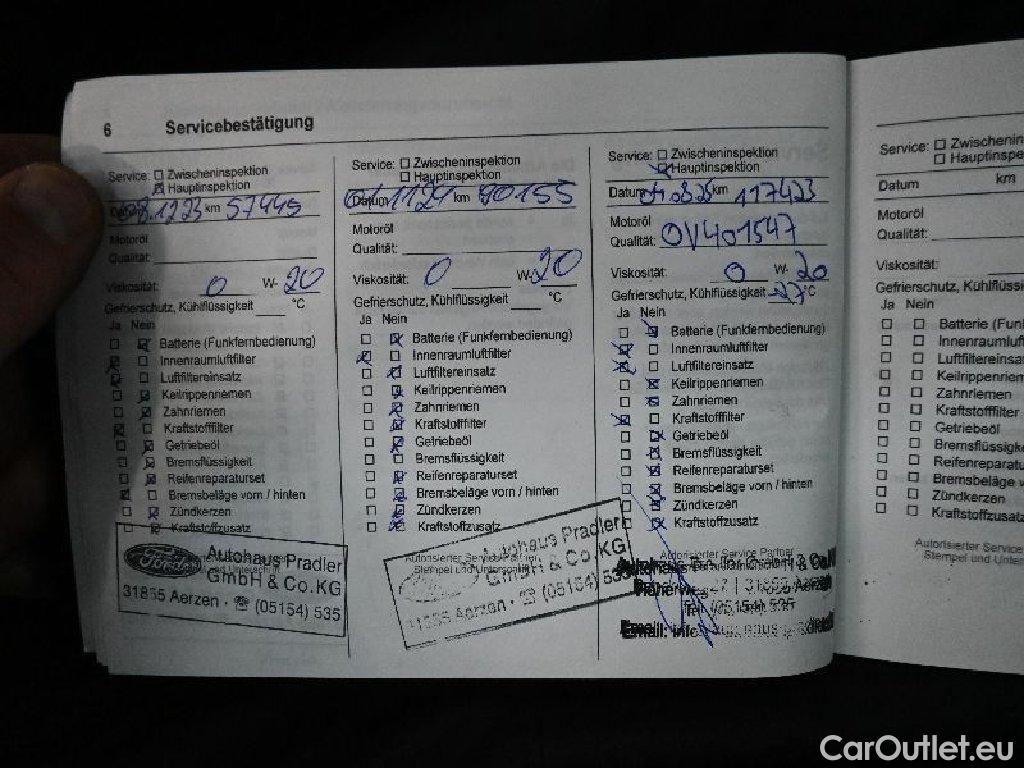 6 Servicebestätigung
Service: Zwischeninspektion
Hauptinspektion
Datum 08.12.23 km 57445
Motoröl
Qualität:
Viskosität: 0 W- 20
Gefrierschutz, Kühlflüssigkeit °C
Ja Nein
Batterie (Funkfernbedienung)
Innenraumluftfilter
Luftfiltereinsatz
Keilrippenriemen
Zahnriemen
Kraftstofffilter
Getriebeöl
Bremsflüssigkeit
Reifenreparaturset
Bremsbeläge vorn / hinten
Zündkerzen
Kraftstoffzusatz
Ford
Autohaus Pradler
GmbH & Co.KG
31855 Aerzen · ☏ (05154) 535
Service: Zwischeninspektion
Hauptinspektion
Datum km 90155
Motoröl
Qualität:
Viskosität: 0 W- 20
Gefrierschutz, Kühlflüssigkeit °C
Ja Nein
Batterie (Funkfernbedienung)
Innenraumluftfilter
Luftfiltereinsatz
Keilrippenriemen
Zahnriemen
Kraftstofffilter
Getriebeöl
Bremsflüssigkeit
Reifenreparaturset
Bremsbeläge vorn / hinten
Zündkerzen
Kraftstoffzusatz
Autorisierter Service
Stempel und Unterschrift
Autohaus Pradler
GmbH & Co.KG
31855 Aerzen · ☏ (05154) 535
Service: Zwischeninspektion
Hauptinspektion
Datum km 117423
Motoröl
Qualität: 01401547
Viskosität: 0 W- 20
Gefrierschutz, Kühlflüssigkeit -27 °C
Ja Nein
Batterie (Funkfernbedienung)
Innenraumluftfilter
Luftfiltereinsatz
Keilrippenriemen
Zahnriemen
Kraftstofffilter
Getriebeöl
Bremsflüssigkeit
Reifenreparaturset
Bremsbeläge vorn / hinten
Zündkerzen
Kraftstoffzusatz
Autorisierter Service Partner
31855 Aerzen
Tel. (05154) 535
Email:
Service: Zwischeninspe
Hauptinspe
Datum km
Motoröl
Qualität:
Viskosität:
Gefrierschutz, Kühlflüssi
Ja Nein
Batterie (Funk
Innenraumluft
Luftfiltereinsa
Keilrippenriem
Zahnriemen
Kraftstofffilter
Getriebeöl
Bremsflüssigk
Reifenreparatu
Bremsbeläge v
Zündkerzen
Kraftstoffzusat
Autorisierter Service
Stempel und Unte
CarOutlet.eu